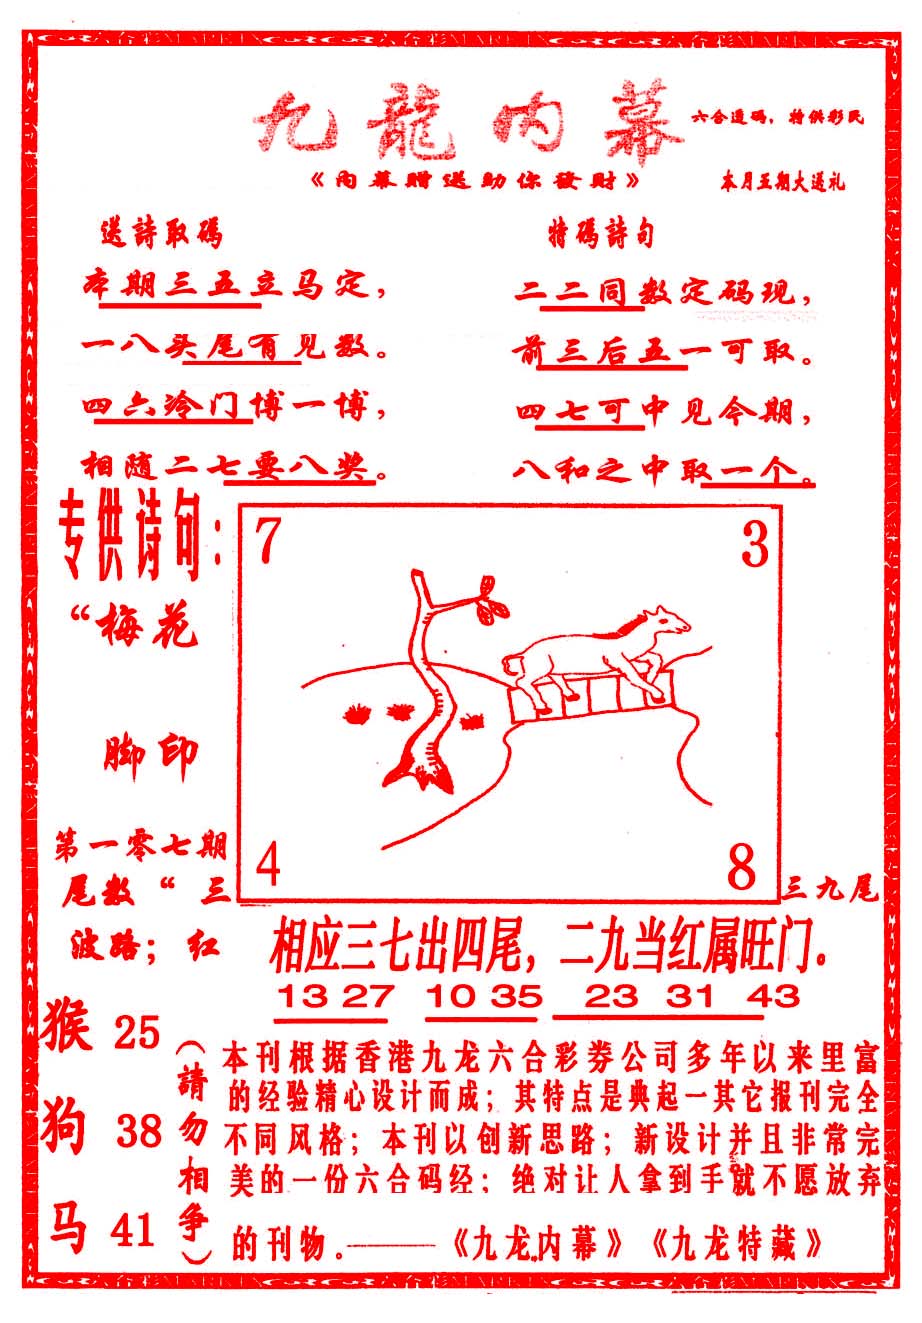 九龍内幕
六合透码，特供彩民
《内幕赠送助你發财》
本月五期大送礼
送詩取碼
本期三五立马定，
一八头尾有见数。
四六冷门博一博，
相随二七要八奖。
特碼詩句
二二同数定码现，
前三后五一可取。
四七可中见今期，
八和之中取一个。
专供诗句：
“梅花
脚印
第一零七期
尾数“三
波路；红
7
3
4
8
三九尾
相应三七出四尾，二九当红属旺门。
13 27 10 35 23 31 43
猴 25
狗 38
马 41
（請勿相争）
本刊根据香港九龙六合彩券公司多年以来里富
的经验精心设计而成；其特点是典起一其它报刊完全
不同风格；本刊以创新思路；新设计并且非常完
美的一份六合码经；绝对让人拿到手就不愿放弃
的刊物。———《九龙内幕》《九龙特藏》